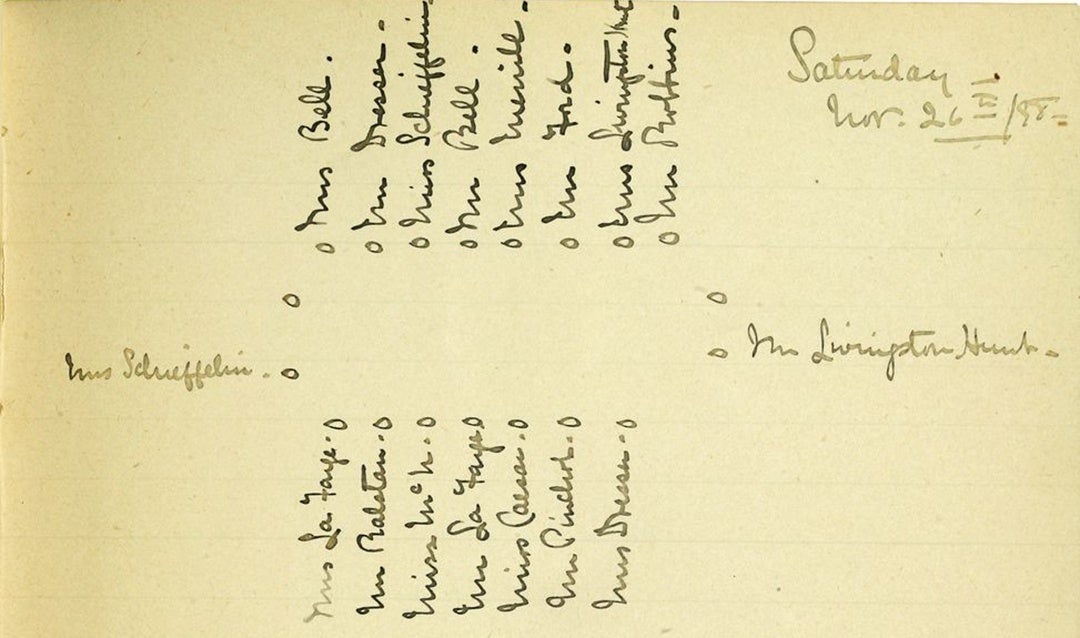 Saturday
Nov. 26th/98-
Mrs Bell.
Mr Dresser.
Miss Schieffelin
Mr Bell.
Mrs Merrill.
Mr Ford.
Mrs Livingston Hunt
Mr Robbins.
Mr Livingston Hunt.
Mrs Schieffelin.
Mrs La Farge.
Mr Ralston.
Miss McK.
Mr La Farge
Miss Caesar.
Mr Pinchot.
Mrs Dresser.